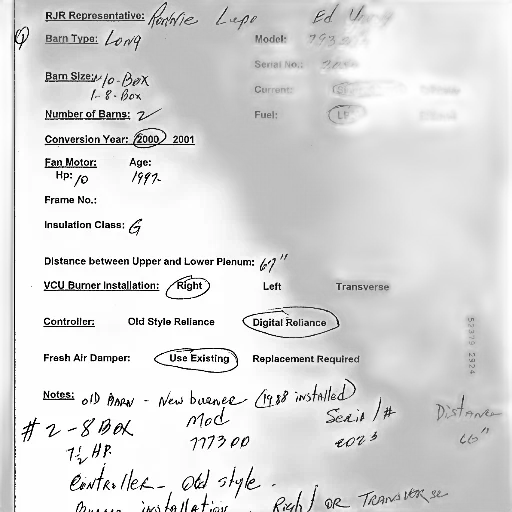 RJR Representative: Ronnie Lupo Ed
Barn Type: Long Model:
Serial No.:
Barn Size: 10-Box Current:
1-8-Box
Number of Barns: 2 Fuel:
Conversion Year: 2000 2001
Fan Motor: Age:
Hp: 10 1992
Frame No.:
Insulation Class: G
Distance between Upper and Lower Plenum: 67"
VCU Burner Installation: Right Left Transverse
Controller: Old Style Reliance Digital Reliance
Fresh Air Damper: Use Existing Replacement Required
52379 2924
Notes: old Barn - New burner (1988 installed)
# 2 - 8 Box Mod Serial # Distance
7½ HP. 777300 2023 66"
Controller - Old style.
Burner installation Right OR Transverse